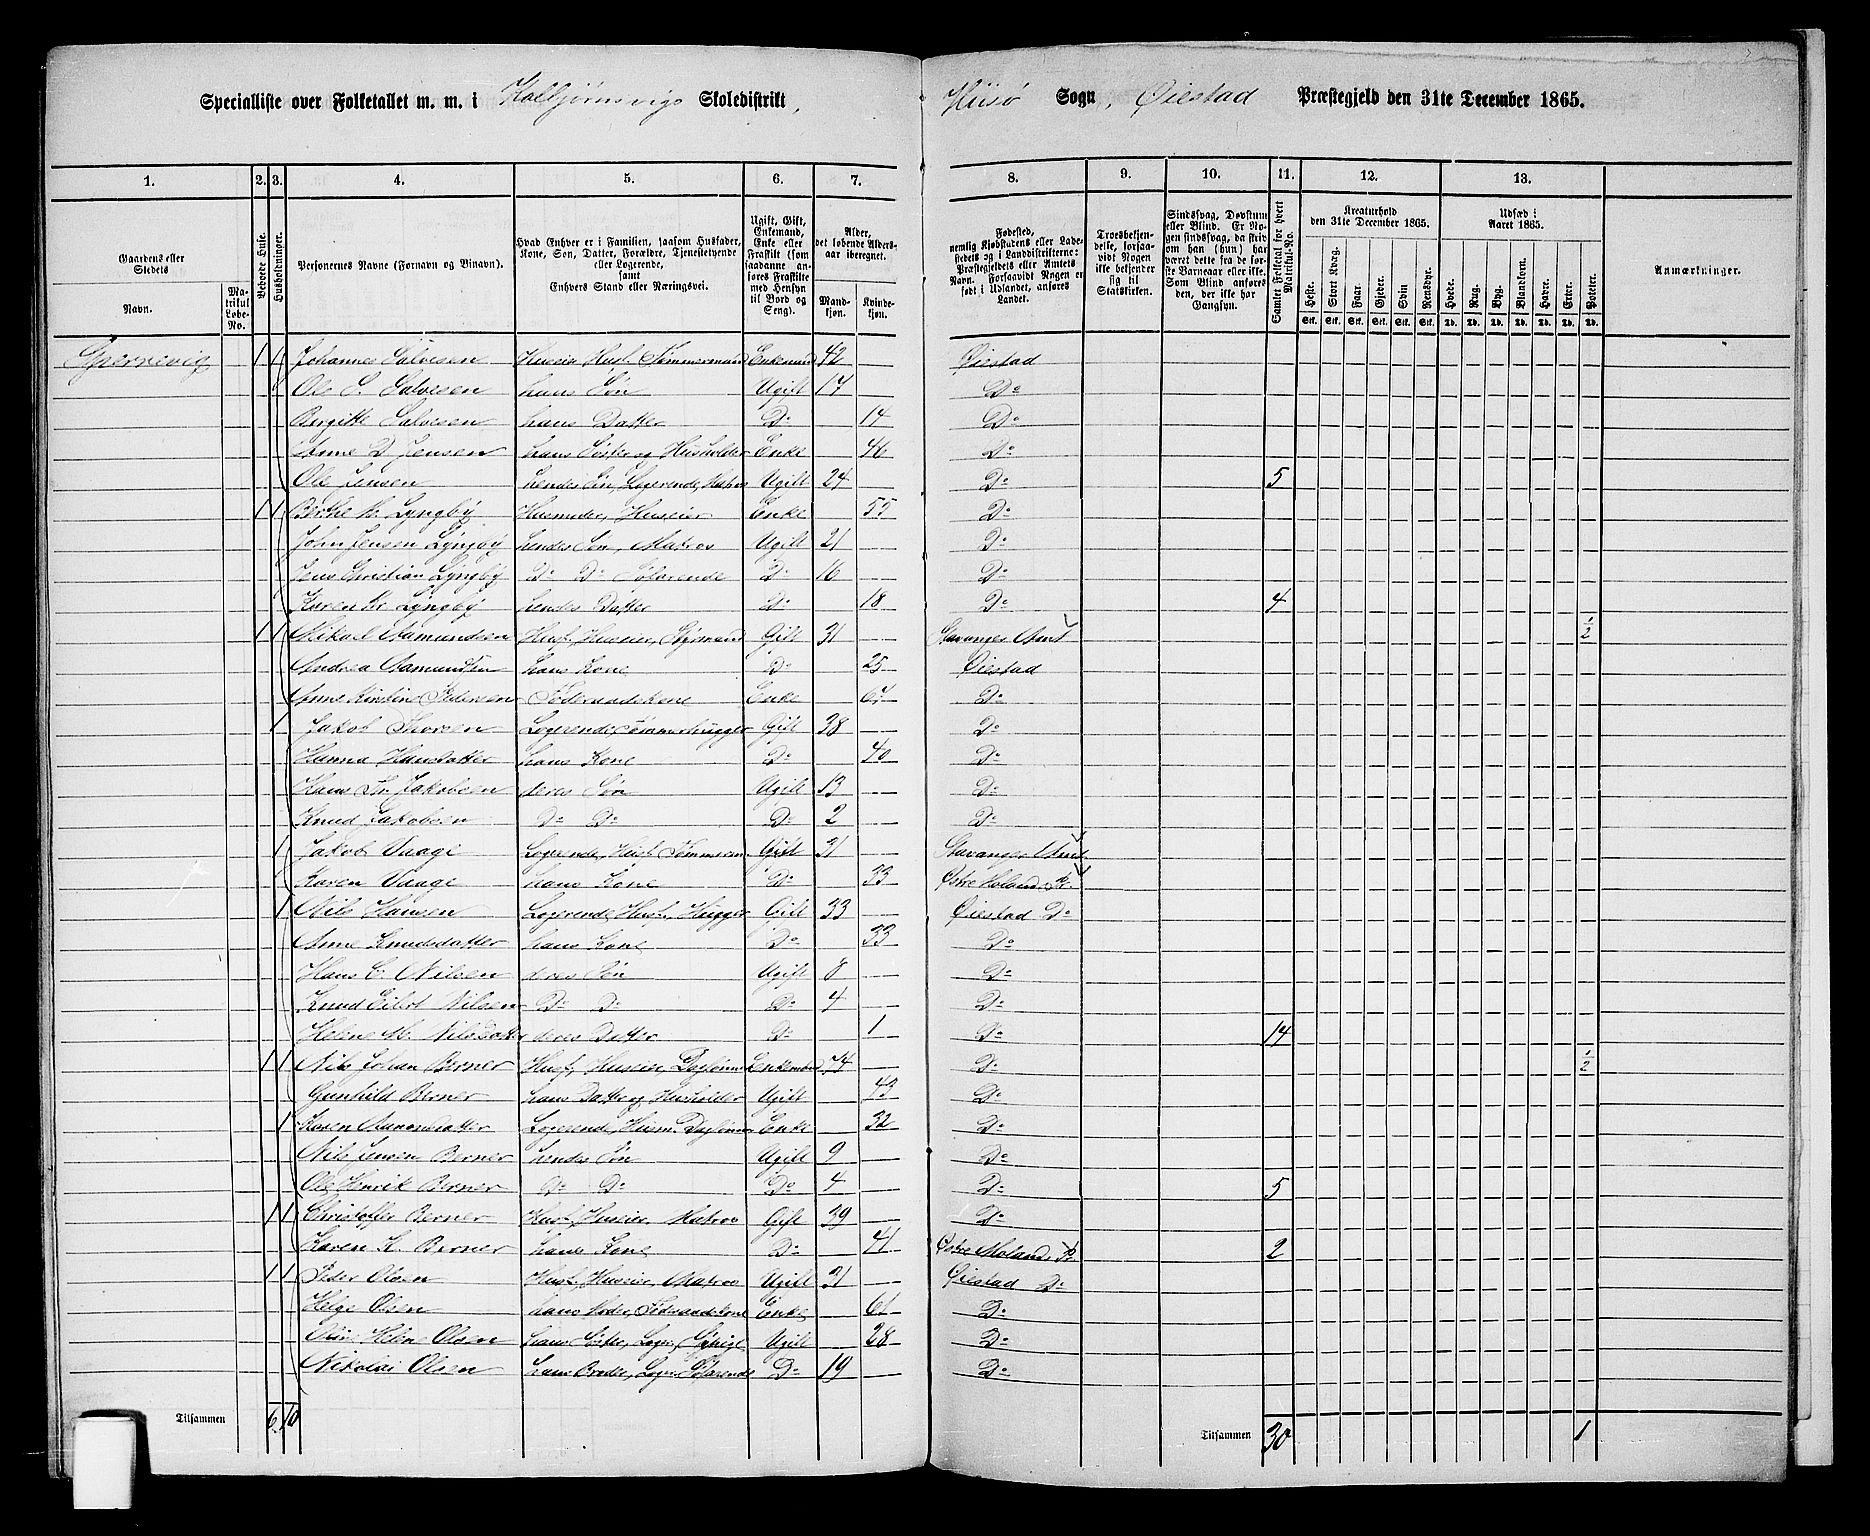 Specialliste over Folketallet m. m. i Kolbjørnsvigs Skoledistrikt, Hiisø Sogn, Øiestad Præstegjeld den 31te December 1865.
1. 2. 3. 4. 5. 6. 7. 8. 9. 10. 11. 12. 13.
Gaardens eller Stedets Navn. Matrikul Løbe-No. Beboede Huse. Husholdninger. Personernes Navne (Fornavn og Binavn). Hvad Enhver er i Familien, saasom Husfader, Kone, Søn, Datter, Forældre, Tjenestetyende eller Logerende, samt Enhvers Stand eller Næringsvei. Ugift, Gift, Enkemand, Enke eller Fraskilt (som saadanne anføres Fraskilte med Hensyn til Bord og Seng). Alder, det løbende Aldersaar iberegnet. Mandkjøn. Kvindekjøn.
Fødested, nemlig Kjøbstadens eller Ladestedets og i Landdistrikterne: Præstegjeldets eller Amtets Navn. Forsaavidt Nogen er født i Udlandet, anføres Landet. Troesbekjendelse, forsaavidt Nogen ikke bekjender sig til Statskirken. Sindssvag, Døvstum eller Blind. Er Nogen sindssvag, da skrives om han (hun) har været dette fra de første Barneaar eller ikke. Som Blind anføres den, der ikke har Gangsyn. Samlet Folketal for hvert Matrikul-No. Kreaturhold den 31te December 1865. Udsæd i Aaret 1865. Anmærkninger.
Heste. Stort Kvæg. Faar. Gjeder. Svin. Rensdyr. Hvede. Rug. Byg. Blandkorn. Havre. Erter. Poteter.
Stk. Stk. Stk. Stk. Stk. Stk. Td. Td. Td. Td. Td. Td. Td.
Gjervevig 1 1 Johannes Salvesen Huseier Husf. Tømmermand Enkemand 42 Øiestad
Ole S. Salvesen hans Søn Ugift 17 Do
Birgitte Salvesen hans Datter Do 14 Do
Anne D Jensen hans Søster og Husholder Enke 46 Do
Ole Jensen hendes Søn, Logerende, Matros Ugift 24 Do 5
1 1 Berthe M. Lyngby Husmoder, Huseier Enke 55 Do
John Jensen Lyngby hendes Søn, Matros Ugift 21 Do
Jens Christian Lyngby Do Do Søfarende Do 16 Do
Karen Kr. Lyngby hendes Datter Do 18 Do 4
1 1 Mikael Aamundsen Husf, Huseier, Styrmand Gift 31 Stavanger Amt 1/2
Andrea Aamundsen hans Kone Do 25 Øiestad
Anne Kirstine Pedersen Føderaadskone Enke 67 Do
1 Jakob Thorsen Logerende, Tømmerhugger Gift 38 Do
Hanna Hansdatter hans Kone Do 40 Do
Hans Th. Jakobsen deres Søn Ugift 13 Do
Knud Jakobsen Do Do Do 2 Do
1 Jakob Vaage Logerende, Husf. Tømmerm. Gift 31 Stavanger Amt
Karen Vaage hans Kone Do 33 Østre Moland Pr
1 Nils Hansen Logerende, Husf., Hugger Gift 33 Øiestad Do
Anne Knudsdatter hans Kone Do 33 Do
Hans C. Nilsen deres Søn Ugift 8 Do
Knud Eilert Nilsen Do Do Do 4 Do
Helene M. Nilsdatter deres Datter Do 1 Do 14
1 1 Nils Johan Berner Husf, Huseier, Daglønner Enkemand 74 Do 1/2
Gunhild Berner hans Datter og Husholder Ugift 43 Do
1 Karen Aanonsdatter Logerende, Husm. Daglønner Enke 32 Do
Nils Jensen Berner hendes Søn Ugift 9 Do
Ole Henrik Berner Do Do Do 4 Do 5
1 1 Christoffer Berner Husf, Huseier, Matros Gift 39 Do
Karen K. Berner hans Kone Do 41 Østre Moland Pr 2
1 1 Peder Olsen Husf, Huseier, Matros Ugift 31 Øiestad Do
Helge Olsen hans Moder, Føderaadskone Enke 61 Do
Stine Helene Olsen hans Søster, Loger. Ugift 28 Do
Nikolai Olsen hans Broder, Loger. Søfarende Do 19 Do
Tilsammen 6 10 Tilsammen 30 1